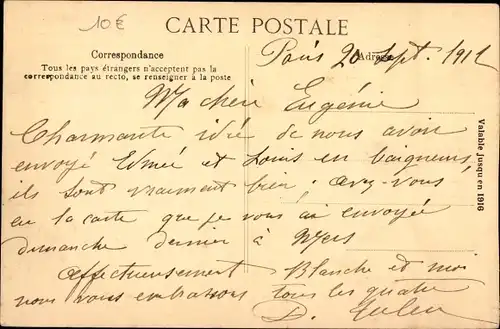 10€
CARTE POSTALE
Correspondance
Adresse
Tous les pays étrangers n'acceptent pas la
correspondance au recto, se renseigner à la poste
Valable jusqu'en 1916
Paris 20 Sept. 1912
Ma chère Eugénie
Charmante idée de nous avoir
envoyé Edmée et Louis en baigneurs
ils sont vraiment bien, avez-vous
eu la carte que je vous ai envoyée
dimanche dernier à Mers
Affectueusement Blanche et moi
nous vous embrassons tous les quatre
D.